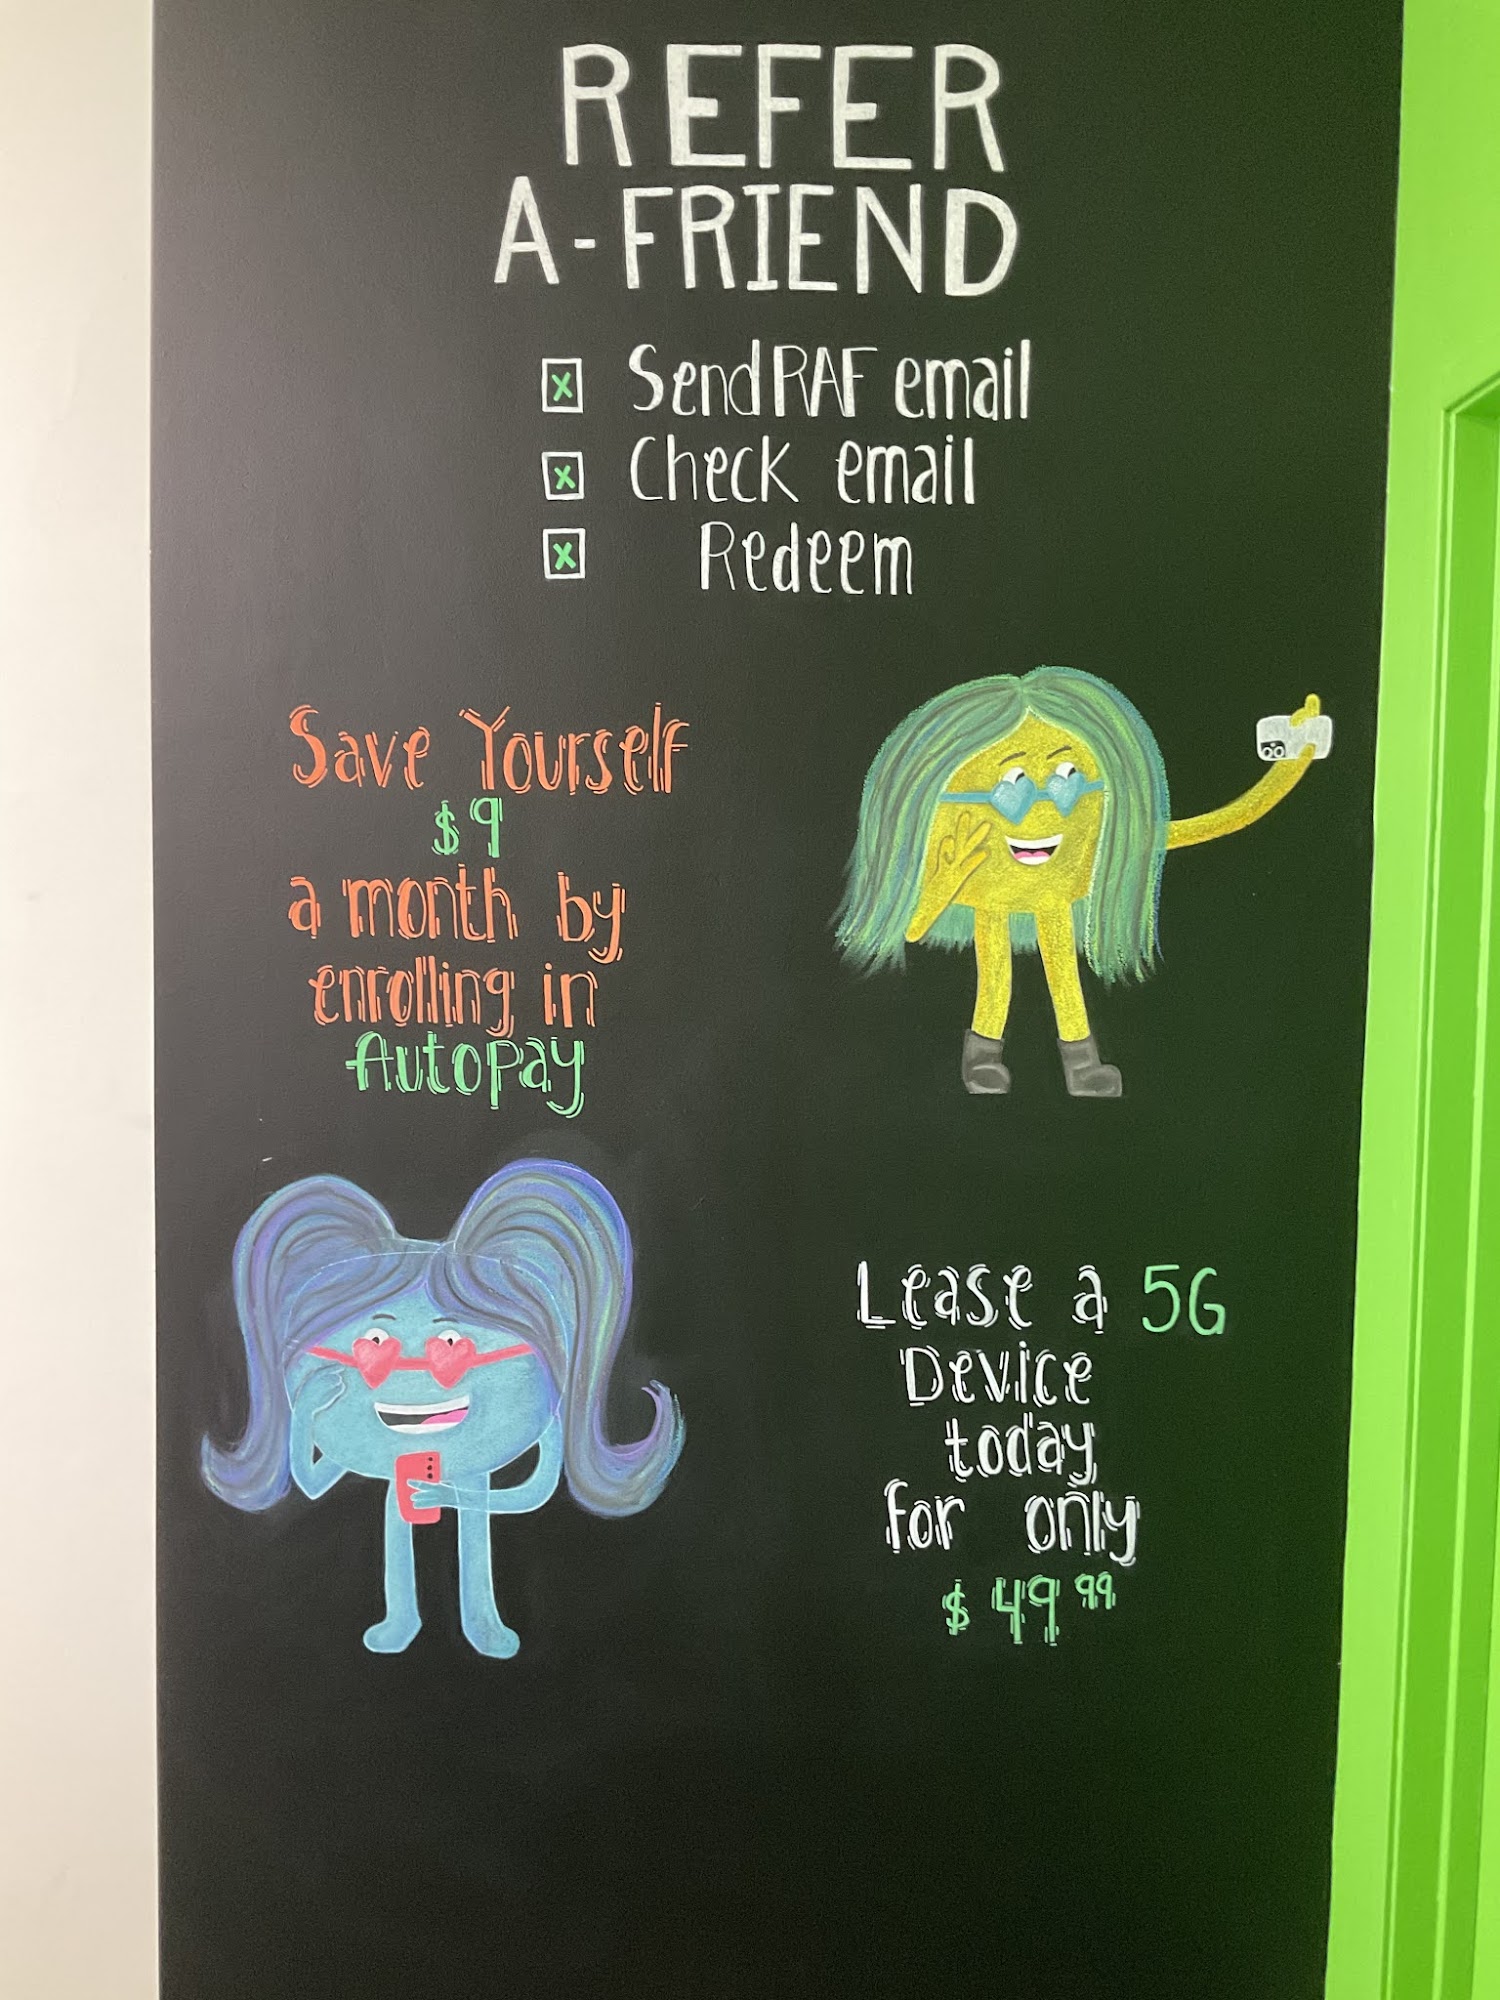 REFER
A-FRIEND
Send RAF email
Check email
Redeem
Save Yourself
$9
a month by
enrolling in
AutoPay
Lease a 5G
Device
today
for only
$49.99